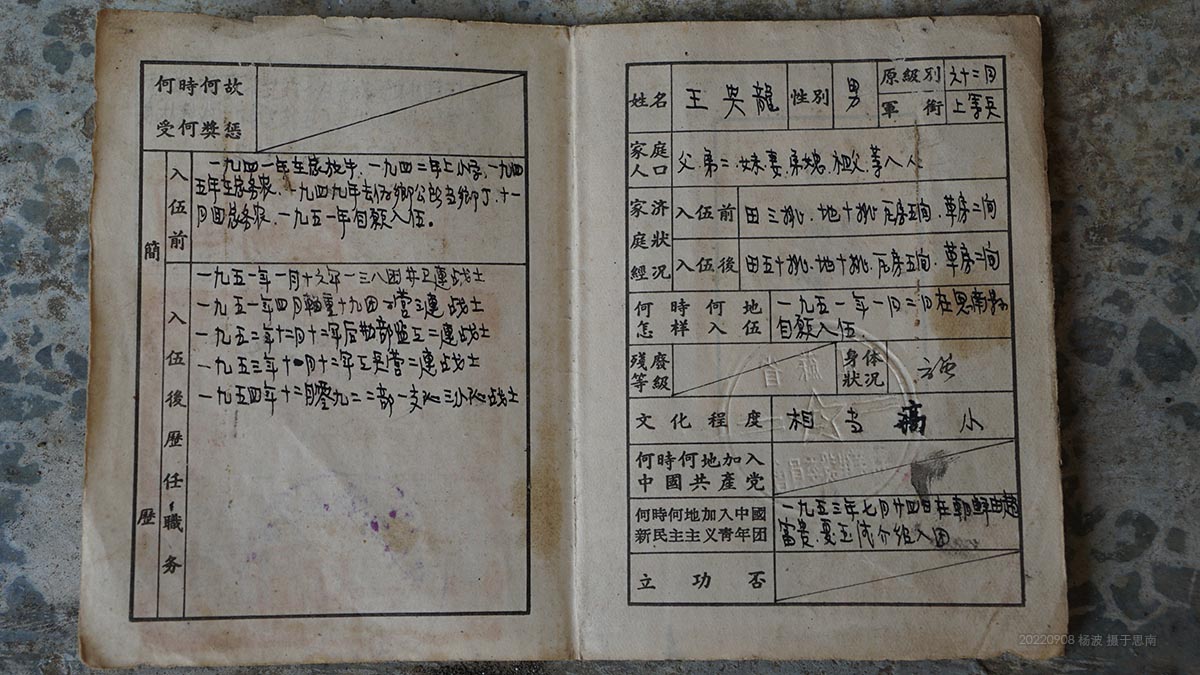 何時何故
受何獎惩
簡歷
入伍前
一九四一年在家放牛.一九四二年上小学,一九四
五年在家务农.一九四九年去伪鄉公所当鄉丁.十一
月回家务农.一九五一年自願入伍。
入伍後歷任職务
一九五一年一月十六年一三八团共卫連战士
一九五一年四月輜重十九团二营三連战士
一九五二年十二月十二年后勤部监工二連战士
一九五三年十一月十二年工兵营二連战士
一九五四年十二月零九二二部一支队三小队战士
姓名 王 龍 性别 男 原級别 六十二 軍銜 上等兵
家庭人口 父.弟二.妹.妻.弟媳.祖父.等八人
家庭經济狀况
入伍前 田三挑.地十挑.瓦房五间.草房二间
入伍後 田五十挑.地十挑.瓦房五间.草房二间
何時何地
怎样入伍
一九五一年一月二日在思南县
自願入伍
殘廢等級
身体狀况
文化程度 相当高小
何時何地加入
中國共產党
何時何地加入中國
新民主主义青年团
一九五三年七月廿四日在朝鮮由趙
富贵.夏玉成介绍入团
立功否
20220908 杨波 摄于思南